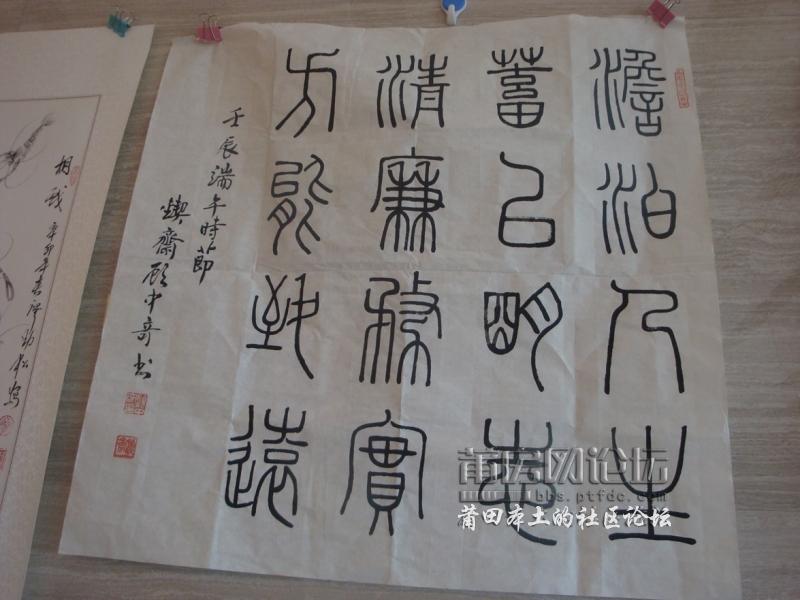 澹泊人生
蓄以明志
清廉務實
方能致遠
壬辰端午時節
齋顾中奇书
相戏
辛卯年春
莆房网论坛
bbs.ptfdc.com
莆田本土的社区论坛